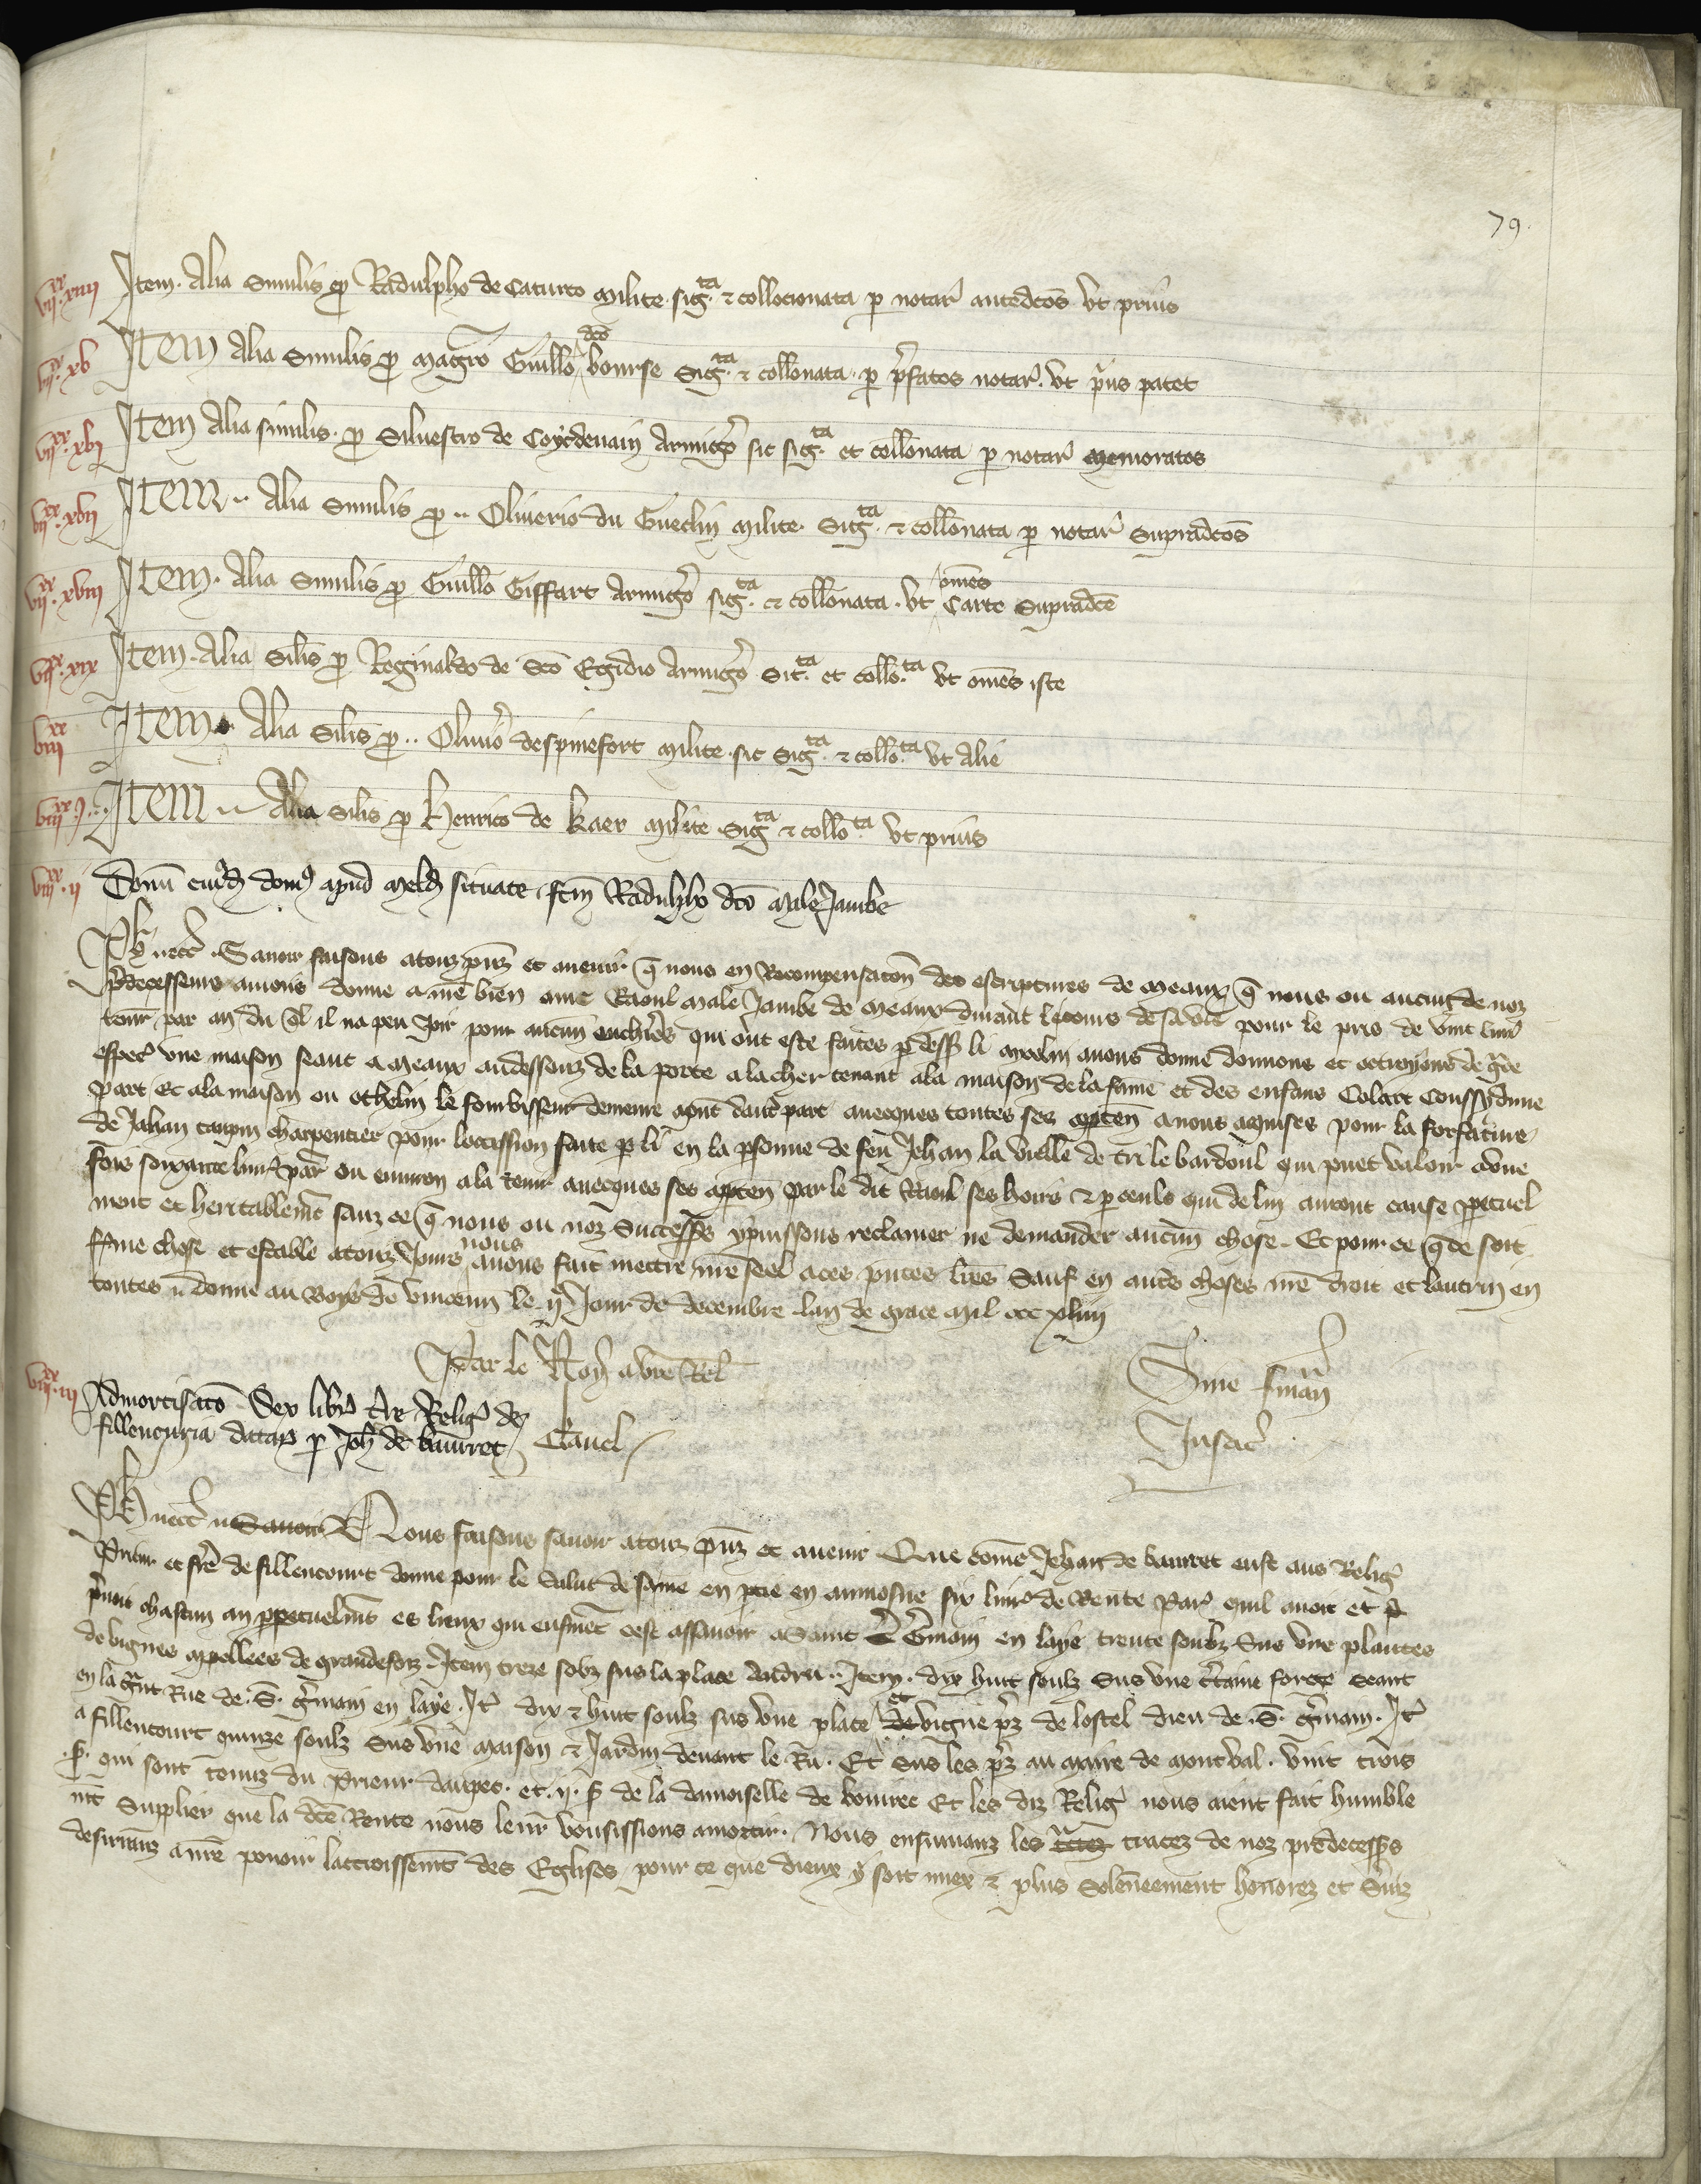 79.
vii xx xiiii Item. Alia similis pro Radulpho de Caturco milite. sig.ta & collocionata p notar antedcos vt prius
vii xx xv Item Alia Similis pro magro Guillo dco bourse Sig.ta & collonata. p prefatos notar. vt prius patet
vii xx xvi Item Alia similis. pro Siluestro de Coyedenain Armigero sic sig.ta et collonata p notar memoratos
vii xx xvii Item .. Alia Similis pro .. Oliuerio du Gueclin milite. Sig.ta & collonata p notar Supradcos
vii xx xviii Item. Alia Similis pro Guillo Giffart Armigero sig.ta & collonata. vt omes Carte Supradce
vii xx xix Item. Alia Silis pro Reginaldo de Sco Egidio Armigero Sic.ta et collo.ta vt omes iste
viii xx Item. Alia Silis pro .. Oliuero despinefort milite. sic Sig.ta & collo.ta vt Alie
viii xx i Item .. Alia Silis pro Henrico de Kaer milite Sig.ta & collo.ta vt prius
viii xx ii Donu cuiusd domus apud meld situate fcm Radulpho dco male Jambe
Ph etc. Sauoir faisons a touz presenz et auenir que nous en Recompensacon des escriptures de meaux que nous ou aucuns de noz
predecesseurs auions donne a nre bien ame Raoul male Jambe de meaux durant le cours de sa vie pour le pris de vint liur
tour par an du quel il na peu Joir pour aucuns encheres qui ont este faites par dessus li auons donne donnons et octroyons de grace
especi vne maison seant a meaux au dessouz de la porte a lacher tenant a la maison de la fame et des enfans Colart dune
part et a la maison ou othelin le fourbisseur demeure apnt dautre part auecques toutes ses apten a nous aquises pour la forfaiture
de Jahan taupin charpentier pour loccission faite par li en la personne de feu Jehan la vielle de tri le bardoul qui puet valoir a vne
fois soixante liur par ou enuiron a la tenir auecques ses apten par le dit Raoul ses hoirs & p ceuls qui de lui auront cause perpetuel
ment et heritablement sanz ce que nous ou noz Successeurs y puissons reclamer ne demander aucune chose. Et pour ce que ce soit
ferme chose et estable a touz Jours nous auons fait mettre nre seel a ces pntes lres Sauf en autres choses nre droit et lautrui en
toutes .. donne au Boys de vincenn le ii Jour de decembre lan de grace mil ccc xliii
Par le Roy a vre Rel Sine finan
viii xx iii Admortisaco Sex libr Relig de
fillencuria datar p Joh de bauuret Clauel Jusac
Ph etc .. Sauoir Nous faisons sauoir a touz pnz et auenir Que come Jehan de bauuret eust aus Relig
Prieur et frere de fillencourt donne pour le salut de same en pure en aumosne six liur de Rente par quil auoit et
chascun an perpetuelment es lieux qui ensuient cest assauoir a Saint Germain en laye trente soubz Sus vne plantes
de vignes appellees de grandeforz. Item treze sobz sus la place Andreu .. Item. dix huit soulz Sus vne certaine forge seant
en la grant Rue de. S. germain en laye. It dix & huit soulz sus vne place et de vigne prez de lostel dieu de. S. germain. It
a fillencourt quinze soulz sus vne maison & Jardin deuant le Ru. Et sus les prez au maire de montval. vint trois
s. qui sont tenuz du prieur daupec. et. ii. s de la damoiselle de bouuree Et les diz Relig nous aient fait humble
ment Supplier que la dce Rente nous leur voussissions amortir. Nous ensuiuanz les traces de noz predecesseurs
desirranz a nre pouoir laccroissement des Eglises pour ce que dieux y soit miex & plus Solenneement honorez et seruiz